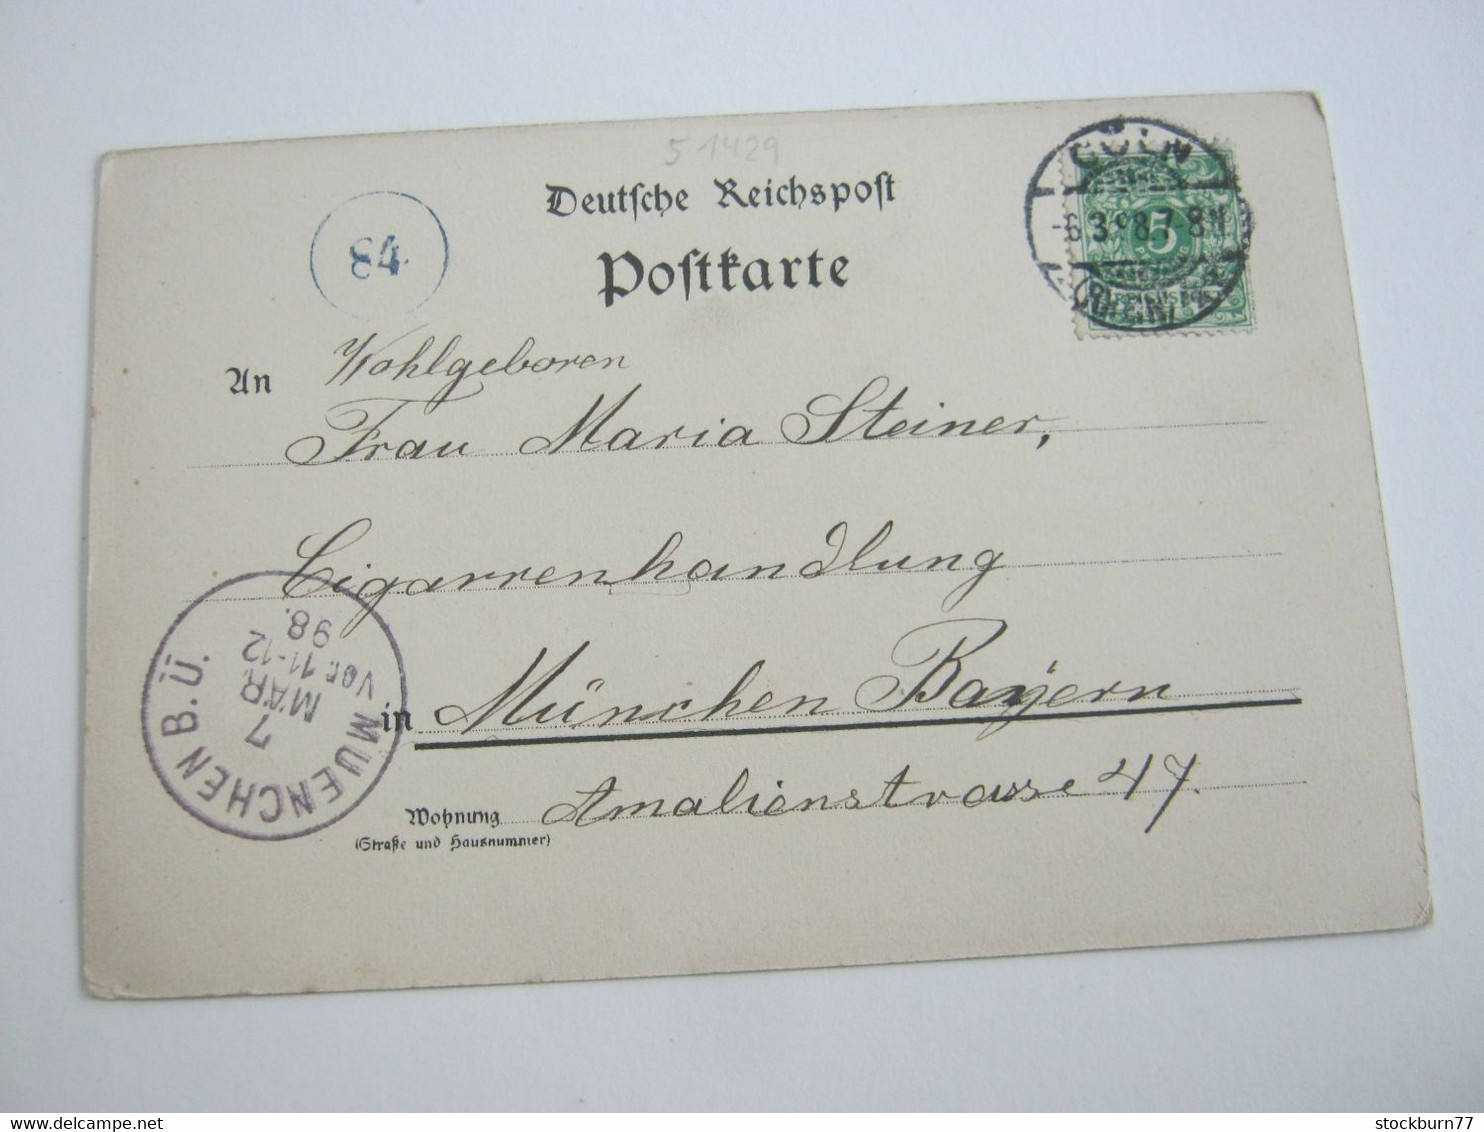 51429
Deutsche Reichspost
Postkarte
84
CÖLN
-6.3.98.7-8N
(RHEIN)
5
An
Wohlgeboren
Frau Maria Steiner,
Cigarrenhandlung
in München Bayern
Wohnung Amalienstrasse 47.
(Straße und Hausnummer)
MUENCHEN B.Ü.
7
MÄR.
Vor. 11-12
98.
stockburn77